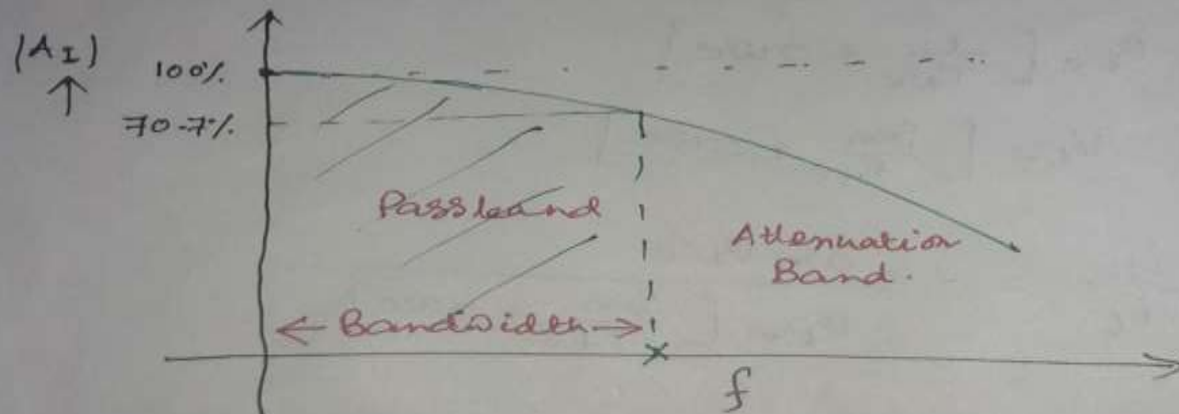 |A_I|
↑
100%
70-7%
Passband
Attenuation
Band.
← Bandwidth →
f